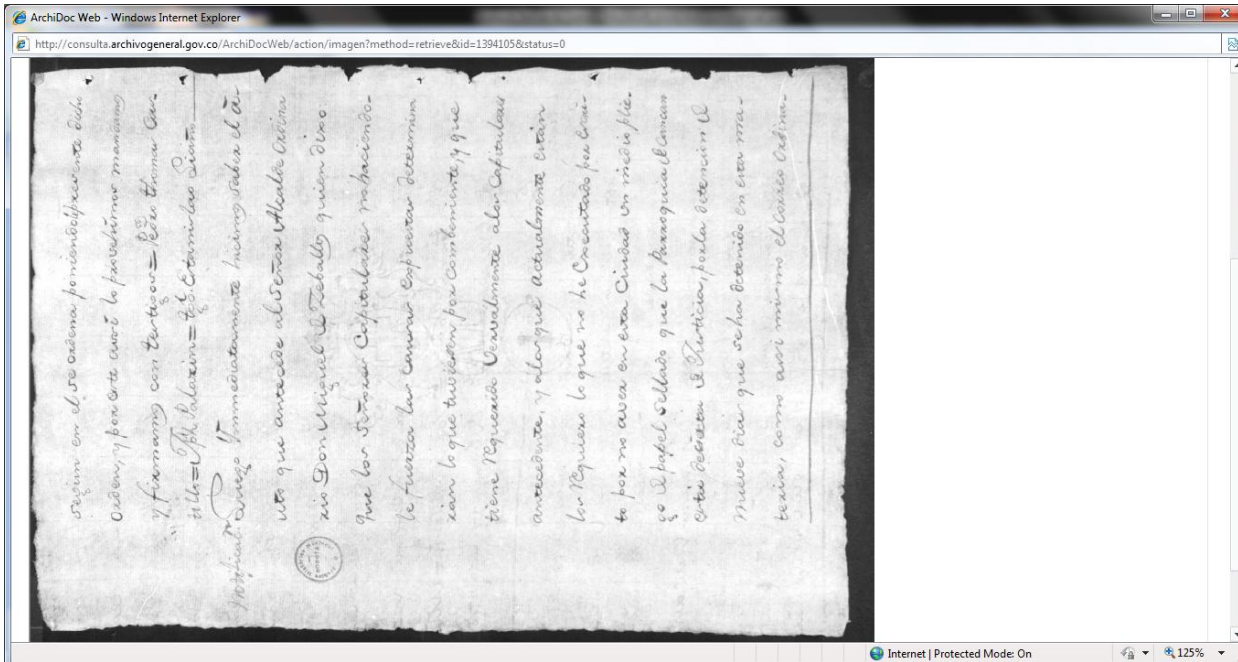 ArchiDoc Web - Windows Internet Explorer
http://consulta.archivogeneral.gov.co/ArchiDocWeb/action/imagen?method=retrieve&id=1394105&status=0
según en el se ordena poniendo presente dicho
orden, y por este auto lo proveímos mandamos
y firmamos con testigos=
inmediatamente hicimos saber el a-
uto que antecede al Señor Alcalde ordina
rio Don Miguel de Zeballos quien dixo
que los Señores Capitulares no haciendo-
le fuerza las causas expuestas determin
xan lo que tuvieren por combeniente, y que
tiene requerido Vervalmente a los Capitulares
antecedente, y a los que actualmente están
los requiero lo que no he executado por escri-
to por no aver en esta Ciudad un medio plie-
go de papel sellado que la Parroquia
esta de Justicia, por la detencion de
nueve dias que se ha detenido en esta ma-
teria, como assi mismo el correo ordina-
Internet | Protected Mode: On
125%